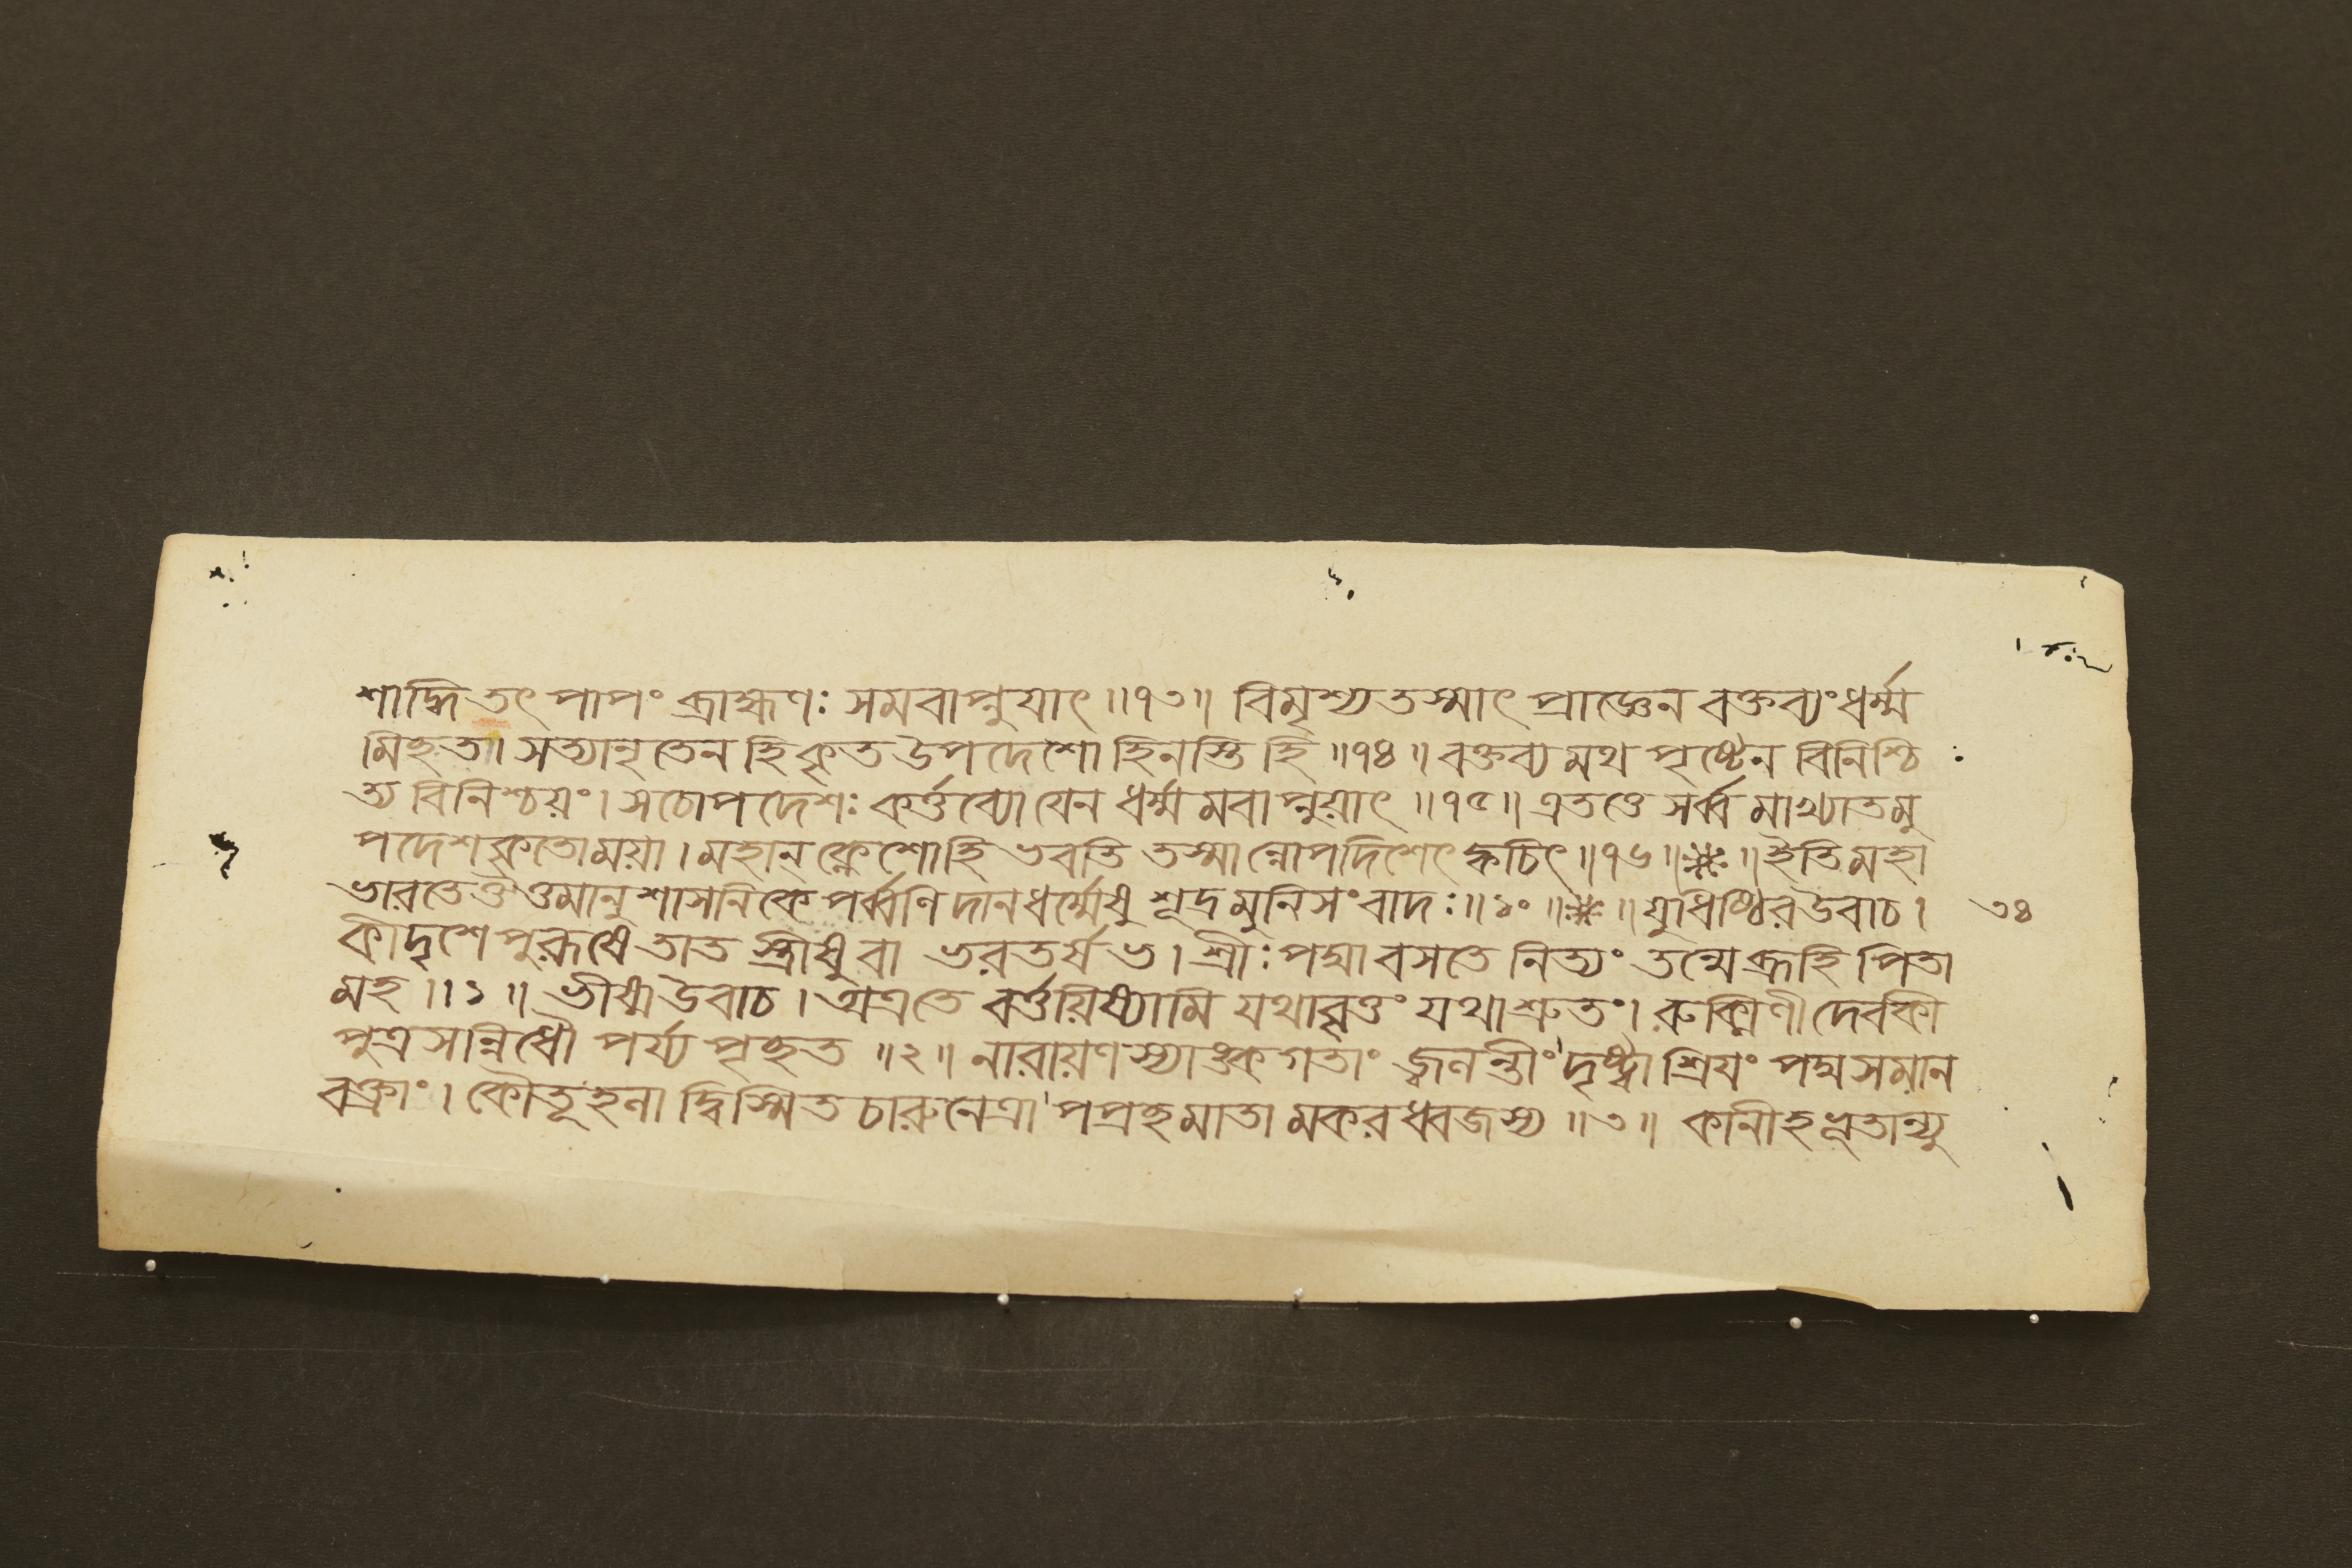 শাদ্ধি তৎ পাপং ব্রাহ্মণঃ সমবাপ্নুয়াৎ ॥৭৩॥ বিমৃশ্য তস্মাৎ প্রাজ্ঞেন বক্তব্যং ধর্ম্ম
মিচ্ছতা। সত্যানৃতেন হি কৃত উপদেশো হিনস্তি হি ॥৭৪॥ বক্তব্যমথ পৃষ্টেন বিনিশ্চি :
ত্য বিনিশ্চয়ং। সচোপদেশঃ কর্ত্তব্যো যেন ধর্ম্মমবাপ্নুয়াৎ ॥৭৫॥ এতত্তে সর্ব্বমাখ্যাতমু
পদেশকৃতো ময়া। মহান্ ক্লেশো হি ভবতি তস্মান্নোপদিশেৎ ক্বচিৎ ॥৭৬॥ ॥ইতি মহা
ভারতে ঔত্তমানুশাসনিকে পর্ব্বণি দানধর্ম্মেষু শূদ্রমুনিসংবাদঃ॥১০॥ ॥যুধিষ্ঠির উবাচ। ৩৪
কীদৃশে পুরুষে তাত স্ত্রীষু বা ভরতর্ষভ। শ্রীঃ পদ্মা বসতে নিত্যং তন্মে ব্রূহি পিতা
মহ ॥১॥ ভীষ্ম উবাচ। অত্র তে বর্ত্তয়িষ্যামি যথাবৃত্তং যথাশ্রুতং। রুক্মিণী দেবকী
পুত্রসন্নিধৌ পর্য্যপৃচ্ছত ॥২॥ নারায়ণস্যাঙ্কগতাং জ্বলন্তীং দৃষ্ট্বা শ্রিয়ং পদ্মসমান
বক্ত্রাং। কৌতূহলাদ্বিস্মিতচারুনেত্রা পপ্রচ্ছ মাতা মকরধ্বজস্য ॥৩॥ কানীহ ভূতান্যু